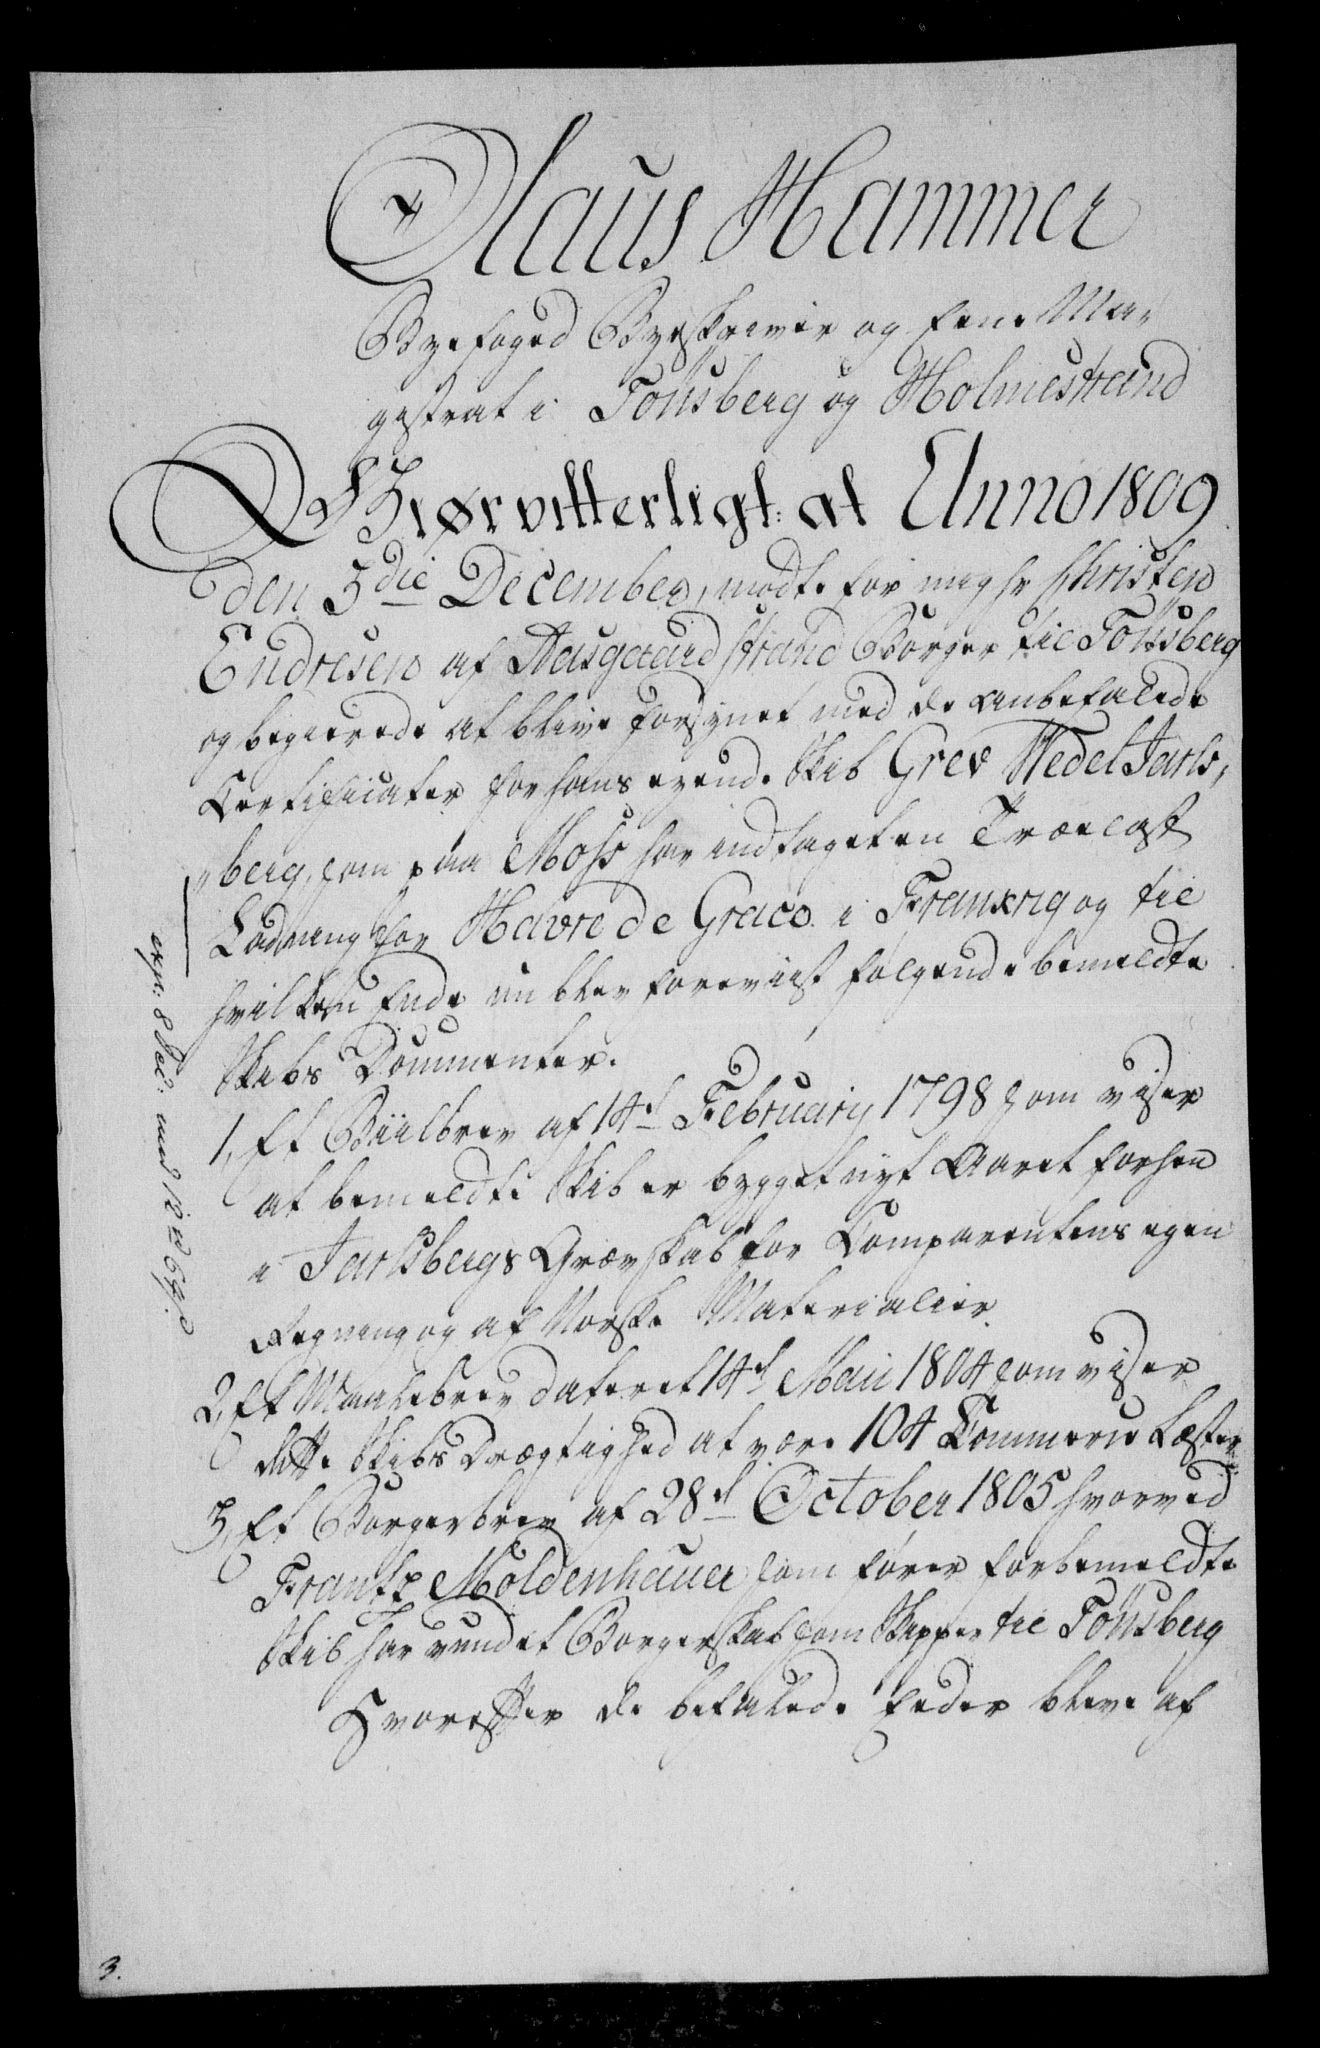 Claus Hammer
Byefoged Byeskriver og Eene Ma-
gistrat i Tönsberg og Holmestrand
Giør vitterligt: at Anno 1809
den 3die December, mødte for mig Hr Christen
Endresen af Aasgaardstrand Borger til Tönsberg
og begierede at blive forsynet med de anbefalede
Certificater for hans eyende Skib Grev Wedel Jarls-
berg, som paa Moss har indtaget en Trælast
Ladning for Havre de Grace i Frankrig og til
hvilken Ende nu blev foreviist følgende bemeldte
Skibs Documenter.
1, Et Biilbrev af 14d Februarij 1798 som viser
at bemeldte Skib er bygget nyt Aaret forhen
i Jarlsbergs Grevskab for Comparentens egen
Regning og af Norske Materialier.
2, Et Maalebrev dateret 14d Maii 1804 som viser
dette Skibs Drægtighed at være 104 Commerce Læster
3, Et Borgerbrev af 28d October 1805 hvorved
Frantz Moldenhauer som fører forbemeldte
Skib har vundet Borgerskab som Skipper til Tönsberg
Hvorefter de befalede Eeder bleve af
exp: 8 Dec: med
3.